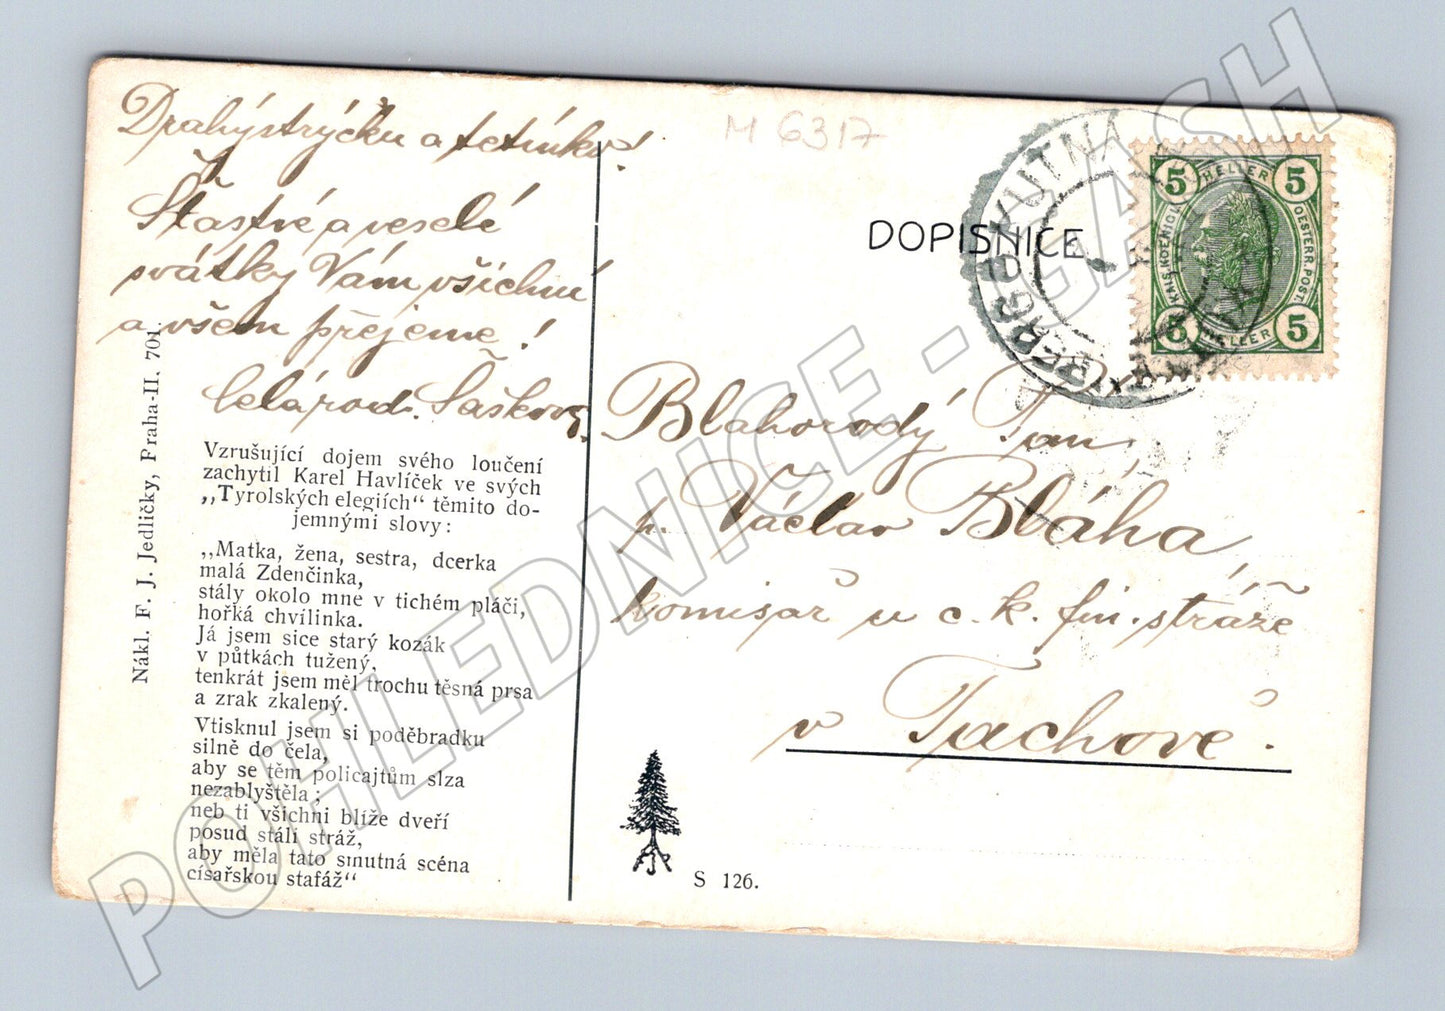 Drahý strýčku a tetinko!
Šťastné a veselé
svátky Vám všichni
a všem přejeme!
celá rod. Šaškova.
Nákl. F. J. Jedličky, Praha-II. 701.
Vzrušující dojem svého loučení
zachytil Karel Havlíček ve svých
„Tyrolských elegiích“ těmito do-
jemnými slovy:
„Matka, žena, sestra, dcerka
malá Zdenčinka,
stály okolo mne v tichém pláči,
hořká chvílinka.
Já jsem sice starý kozák
v půtkách tužený,
tenkrát jsem měl trochu těsná prsa
a zrak zkalený.
Vtisknul jsem si poděbradku
silně do čela,
aby se těm policajtům slza
nezablyštěla;
neb ti všichni blíže dveří
posud stáli stráž,
aby měla tato smutná scéna
císařskou stafáž“
M 6317
DOPISNICE
KUTNÁ
5 HELLER 5
KAIS. KOENIGL.
OESTERR. POST.
5 HELLER 5
Blahorodý Pan
p. Václav Bláha,
komisař u c. k. fin. stráže
v Tachově.
S 126.
POHLEDNICE - GASH